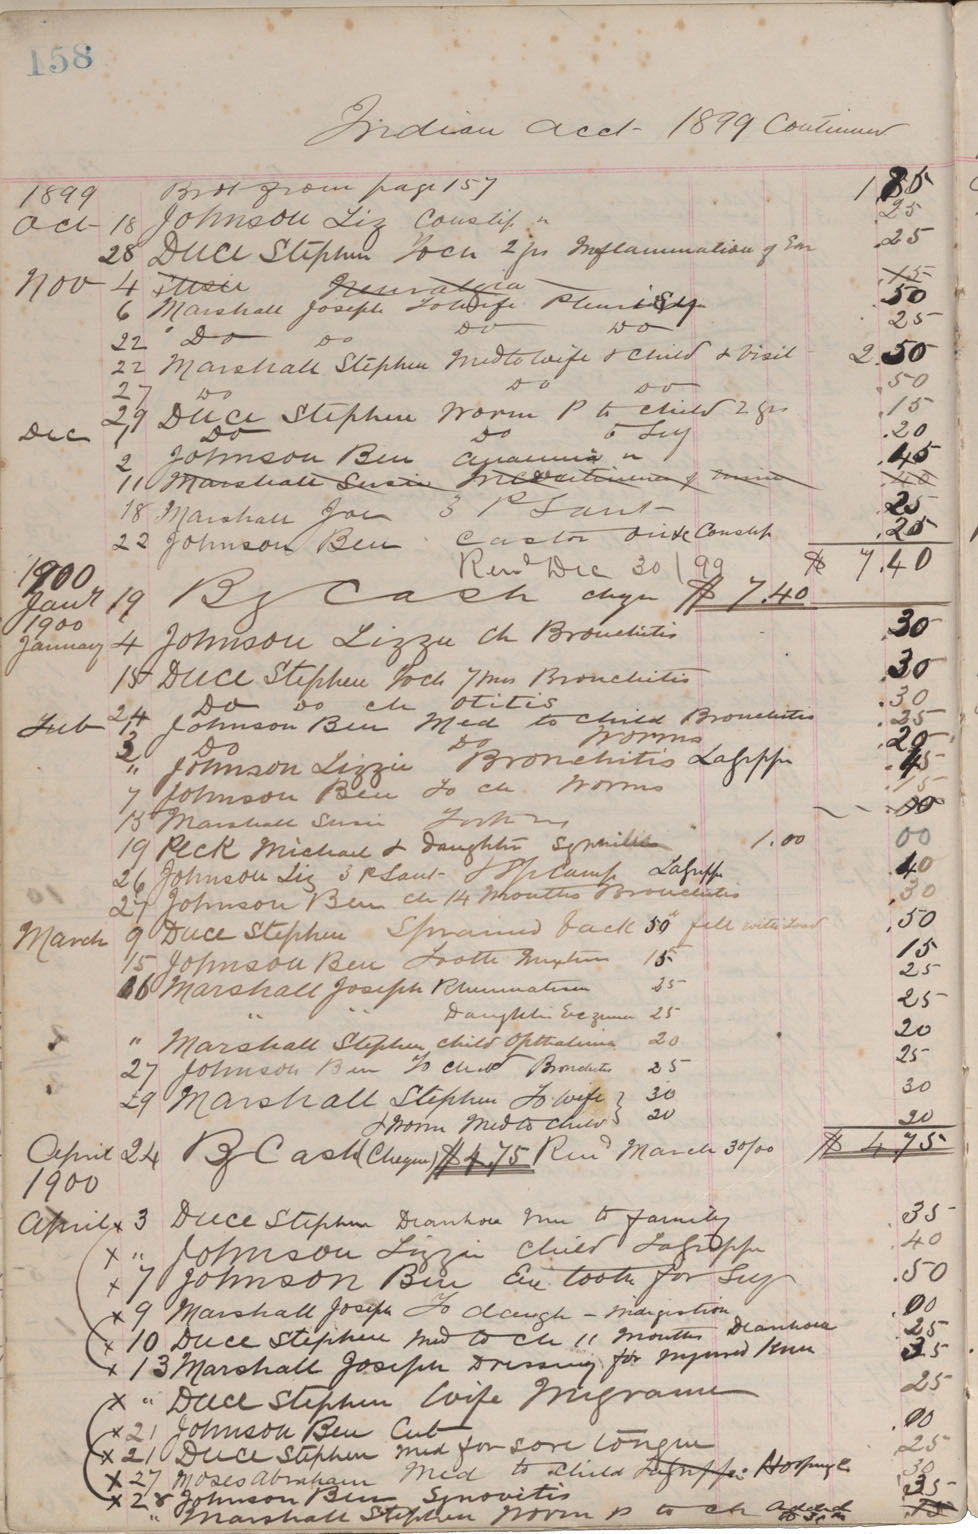 158
Indian acct - 1899 Continued
1899 Brot from page 157 1 85
Oct 18 Johnson Liz Constip n 25
28 Duce Stephen To ch 2 yrs Inflammation of Ear .25
Nov 4 Susie Neuralgia 15
6 Marshall Joseph To Wife Pleurisy 50
22 Do Do Do Do 25
22 Marshall Stephen Med to wife & child & Visit 2.50
27 Do Do Do .50
29 Duce Stephen Worm P to child 2 yrs .15
Dec 1 Do Do to Guy .20
2 Johnson Ben Anaemia n .45
11 Marshall Susie 40
18 Marshall Joe 3 P Sant 25
22 Johnson Ben Castor Constip .25
Ren'd Dec 30 / 99 $ 7.40
1900
Jany 19 By Cash cheque $ 7.40
1900
January 4 Johnson Lizzie ch Bronchitis .30
15 Duce Stephen To ch 7 mos Bronchitis .30
24 Do Do ch Otitis .30
Feb 1 Johnson Ben Med to child Bronchitis .25
3 Do Do Worms .20
" Johnson Lizzie Bronchitis LaGrippe .45
7 Johnson Ben To ch Worms .15
15 Marshall Susie
19 Peck Michael & Daughter Syphilis 1.00 00
26 Johnson Liz 3 P Sant & Camp LaGrippe 40
27 Johnson Ben ch 14 months Bronchitis .30
March 9 Duce Stephen Sprained back 50 fell with load .50
15 Johnson Ben Tooth Mixture 15 15
16 Marshall Joseph Rheumatism 25 25
" " Daughter Eczema 25 25
" Marshall Stephen child Opthalmia 20 20
27 Johnson Ben To child Bronchitis 25 25
29 Marshall Stephen To Wife } 30 30
& Worm Med to child } 20 20
April 24 By Cash (Cheque) $4.75 Ren'd March 30/00 $ 4.75
1900
April x 3 Duce Stephen Diarrhoea to family .35
x " Johnson Lizzie child LaGrippe .40
x 7 Johnson Ben Ex tooth for Guy .50
x 9 Marshall Joseph To daugh - indigestion .00
x 10 Duce Stephen Med to ch 11 months Diarrhoea .25
x 13 Marshall Joseph Dressing for Injured Knee 35
x " Duce Stephen Wife Migraine 25
x 21 Johnson Ben Cut .00
x 21 Duce Stephen Med for sore tongue 25
x 27 Moses Abraham Med to child LaGrippe: 30
x 28 Johnson Ben Synovitis .35
" Marshall Stephen Worm P to ch 15